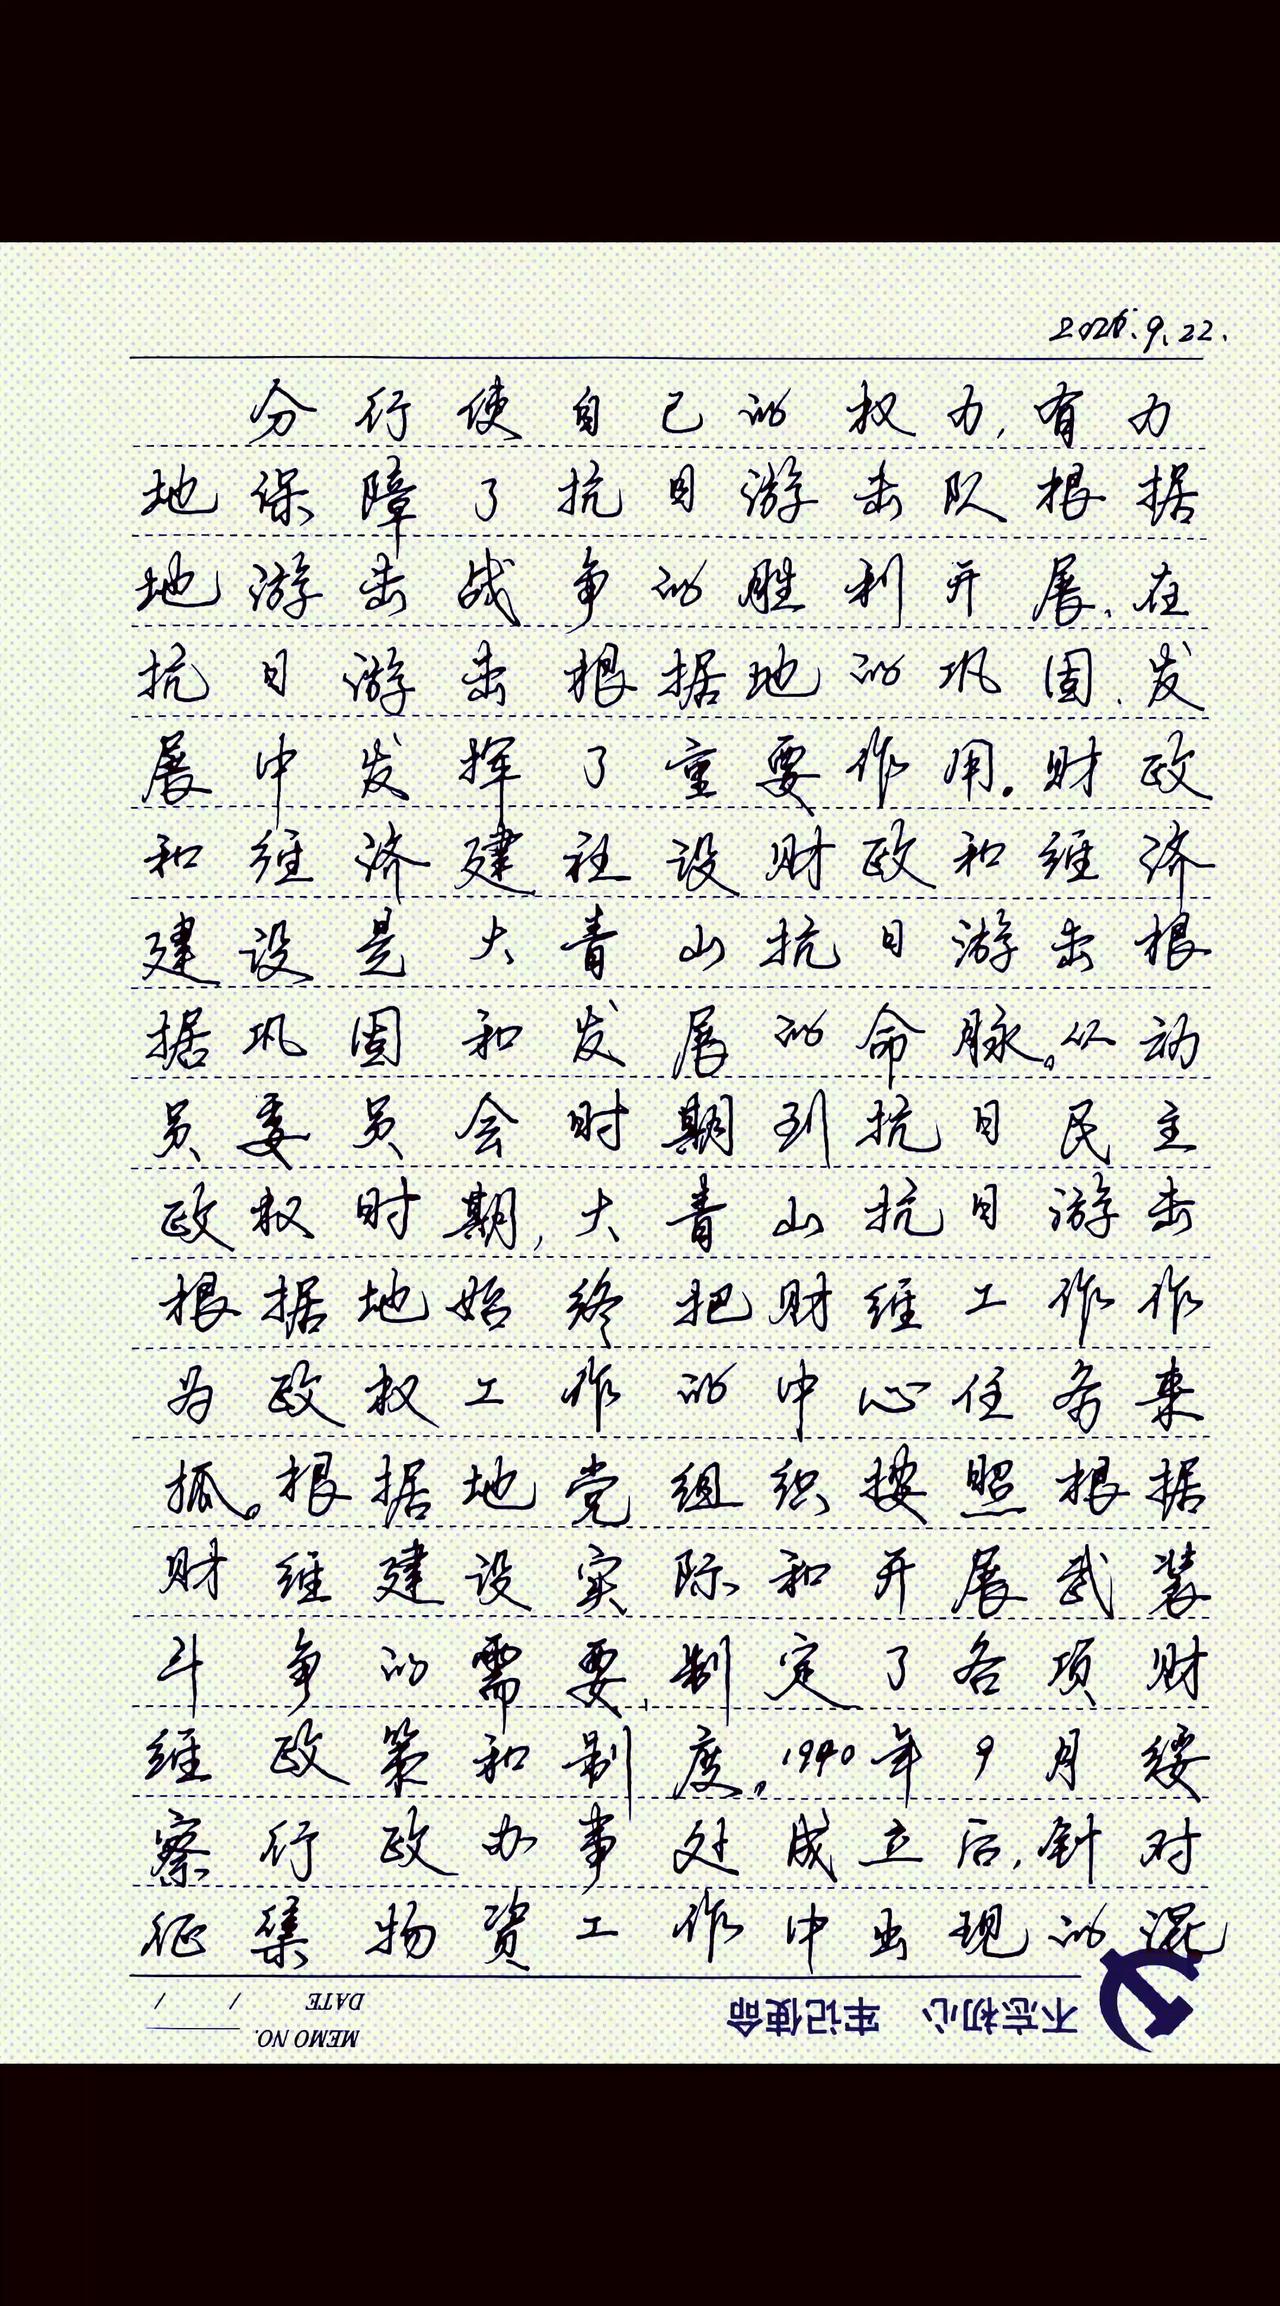 2025.9.22.
分行使自己的权力,有力
地保障了抗日游击队根据
地游击战争的胜利开展、在
抗日游击根据地的巩固、发
展中发挥了重要作用。财政
和经济建社设财政和经济
建设是大青山抗日游击根
据巩固和发展的命脉。从动
员委员会时期到抗日民主
政权时期,大青山抗日游击
根据地始终把财经工作作
为政权工作的中心任务来
抓。根据地党组织按照根据
财经建设实际和开展武装
斗争的需要、制定了各项财
经政策和制度。1940年9月绥
察行政办事处成立后,针对
征集物資工作中出现的混
不忘初心 牢记使命
DATE / /
MEMO NO.